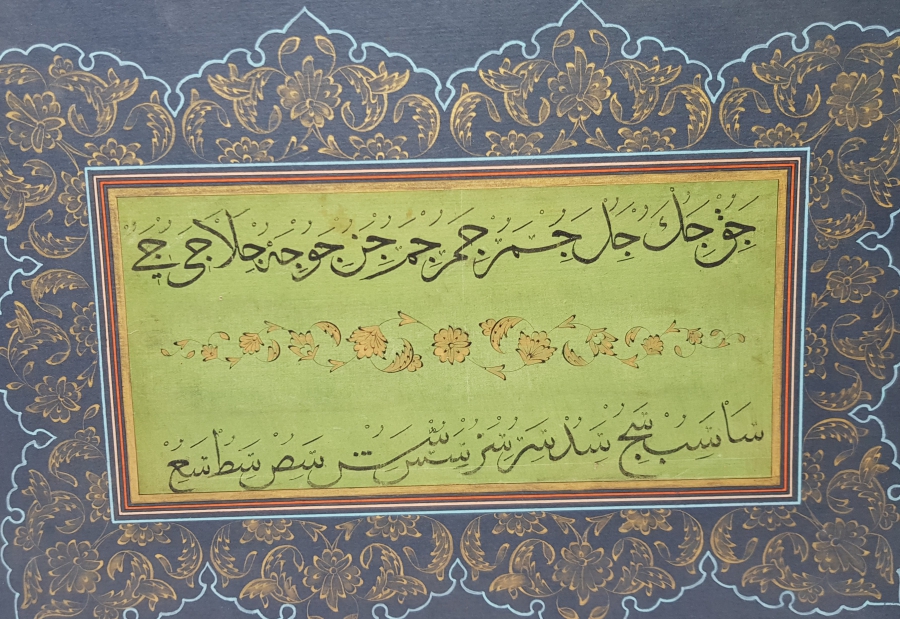 جق جك جل جم جم جم جن جو جه جلا جى جے
سا سب سج سد سر سر سس سس سص سط سع